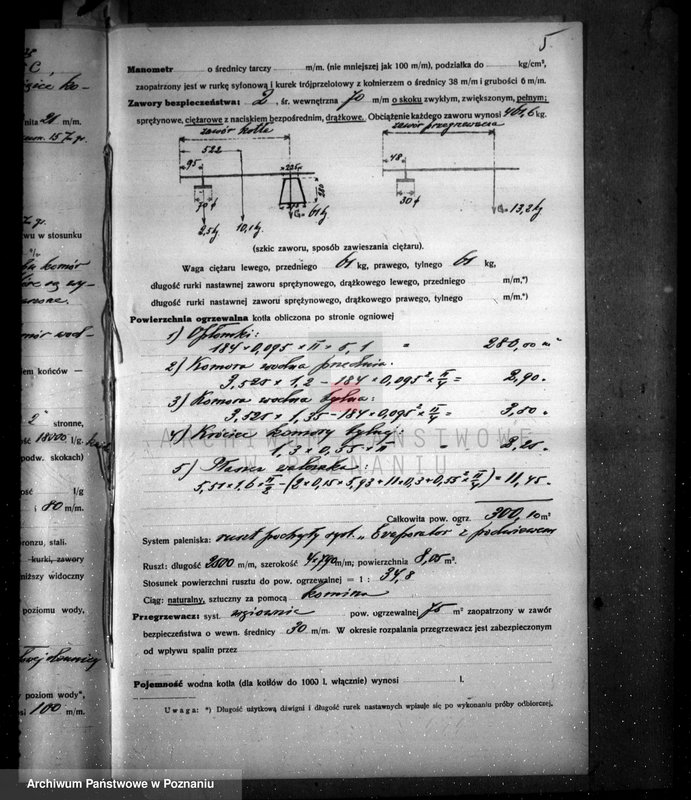 5.
Manometr o średnicy tarczy m/m. (nie mniejszej jak 100 m/m), podziałka do kg/cm²,
zaopatrzony jest w rurkę syfonową i kurek trójprzelotowy z kołnierzem o średnicy 38 m/m i grubości 6 m/m.
Zawory bezpieczeństwa: 2, śr. wewnętrzna 70 m/m o skoku zwykłym, zwiększonym, pełnym;
sprężynowe, ciężarowe z naciskiem bezpośrednim, drążkowe. Obciążenie każdego zaworu wynosi 461,6 kg.
zawór kotła
zawór przegrzewacza
522
95
48
225
280
275
70 φ
30 φ
2,5 kg
10,1 kg
G = 61 kg
G = 13,2 kg
(szkic zaworu, sposób zawieszania ciężaru).
Waga ciężaru lewego, przedniego 61 kg, prawego, tylnego 61 kg,
długość rurki nastawnej zaworu sprężynowego, drążkowego lewego, przedniego m/m,*)
długość rurki nastawnej zaworu sprężynowego, drążkowego prawego, tylnego m/m.*)
Powierzchnia ogrzewalna kotła obliczona po stronie ogniowej
1) Opłomki:
184 × 0,095 × π × 5,1 = 280,00 m²
2) Komora wodna przednia:
3,525 × 1,2 – 184 × 0,095² × π/4 = 2,90 "
3) Komora wodna tylna:
3,525 × 1,35 – 184 × 0,095² × π/4 = 3,50 "
4) Króćce komory tylnej:
1,3 × 0,55 × π = 2,25 "
5) Płaszcz walczaka:
5,51 × 1,6 × π/2 – (2 × 0,15 × 5,93 + 11 × 0,3 + 0,55² × π/4) = 11,45 "
Całkowita pow. ogrz. 300,10 m²
System paleniska: ruszt pochyły syst. „Evaporator" z podmuchem
Ruszt: długość 2500 m/m, szerokość 4×790 m/m; powierzchnia 8,05 m².
Stosunek powierzchni rusztu do pow. ogrzewalnej = 1 : 34,8
Ciąg: naturalny, sztuczny za pomocą komina
Przegrzewacz: syst. pow. ogrzewalnej 75 m² zaopatrzony w zawór
bezpieczeństwa o wewn. średnicy 30 m/m. W okresie rozpalania przegrzewacz jest zabezpieczonym
od wpływu spalin przez
Pojemność wodna kotła (dla kotłów do 1000 l. włącznie) wynosi l.
Uwaga: *) Długość użytkową dźwigni i długość rurek nastawnych wpisuje się po wykonaniu próby odbiorczej.
C
nita 21 m/m.
wu w stosunku
em kończów —
2" stronne,
ść 18000 l/g.
podw. skokach)
ość l/g
i 80 m/m.
bronzu, stali.
kurki, zawory
niższy widoczny
poziomu wody,
y poziom wody",
si 100 m/m.
ARCHIWUM PAŃSTWOWE
W POZNANIU
Archiwum Państwowe w Poznaniu